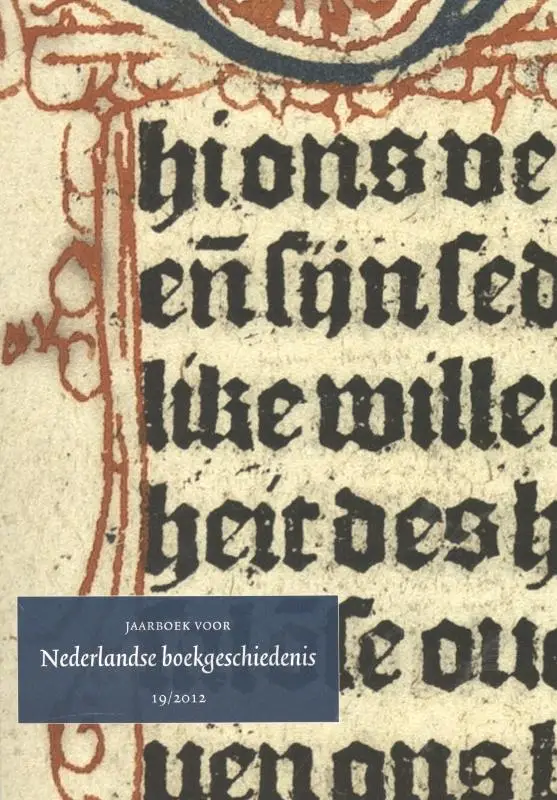 hions ve
en̄ sijn sed
like wille
heit des h
se ou
uen ons
JAARBOEK VOOR
Nederlandse boekgeschiedenis
19/2012